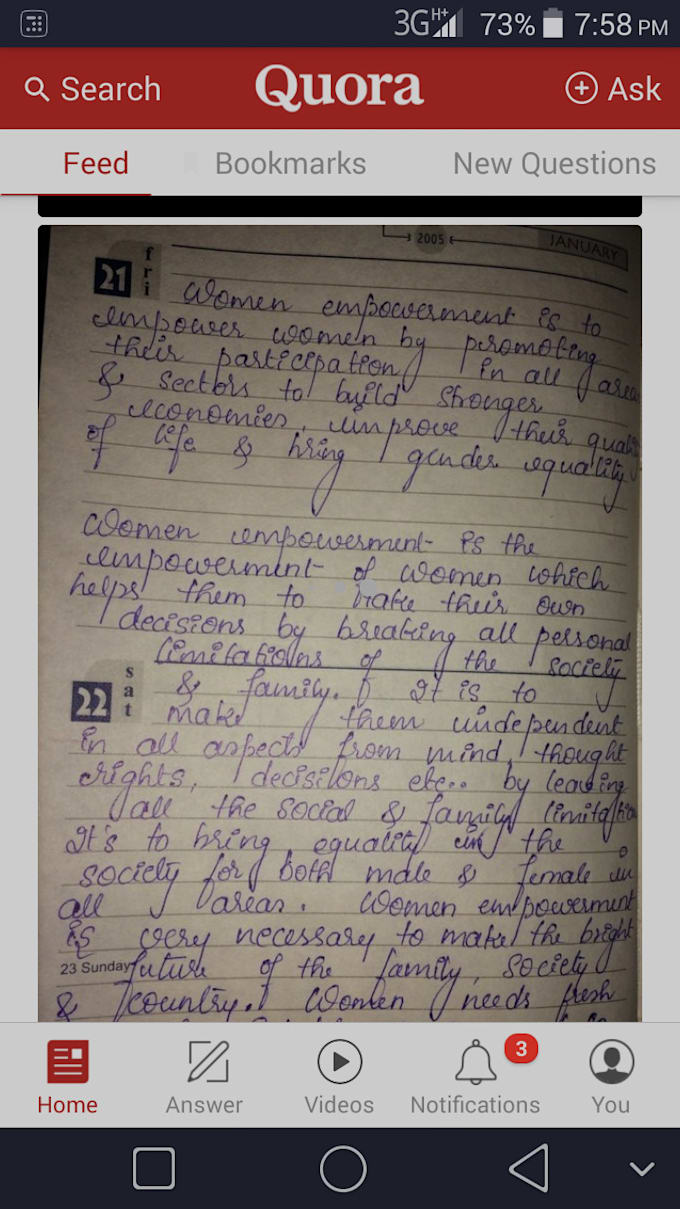 3G H+ 73% 7:58 PM
Search Quora Ask
Feed Bookmarks New Questions
2005 JANUARY
21 fri
Women empowerment is to
empower women by promoting
their participation in all area
& sectors to build stronger
economies, improve their quality
of life & bring gender equality
Women empowerment is the
empowerment of women which
helps them to make their own
decisions by breaking all personal
limitations of the society
22 sat
& family. It is to
make them independent
in all aspects from mind, thought
rights, decisions etc.. by leaving
all the social & family limitation
It's to bring equality in the
society for both male & female in
all areas. Women empowerment
is very necessary to make the bright
23 Sunday
future of the family, society
& country. Women needs fresh
3
Home Answer Videos Notifications You